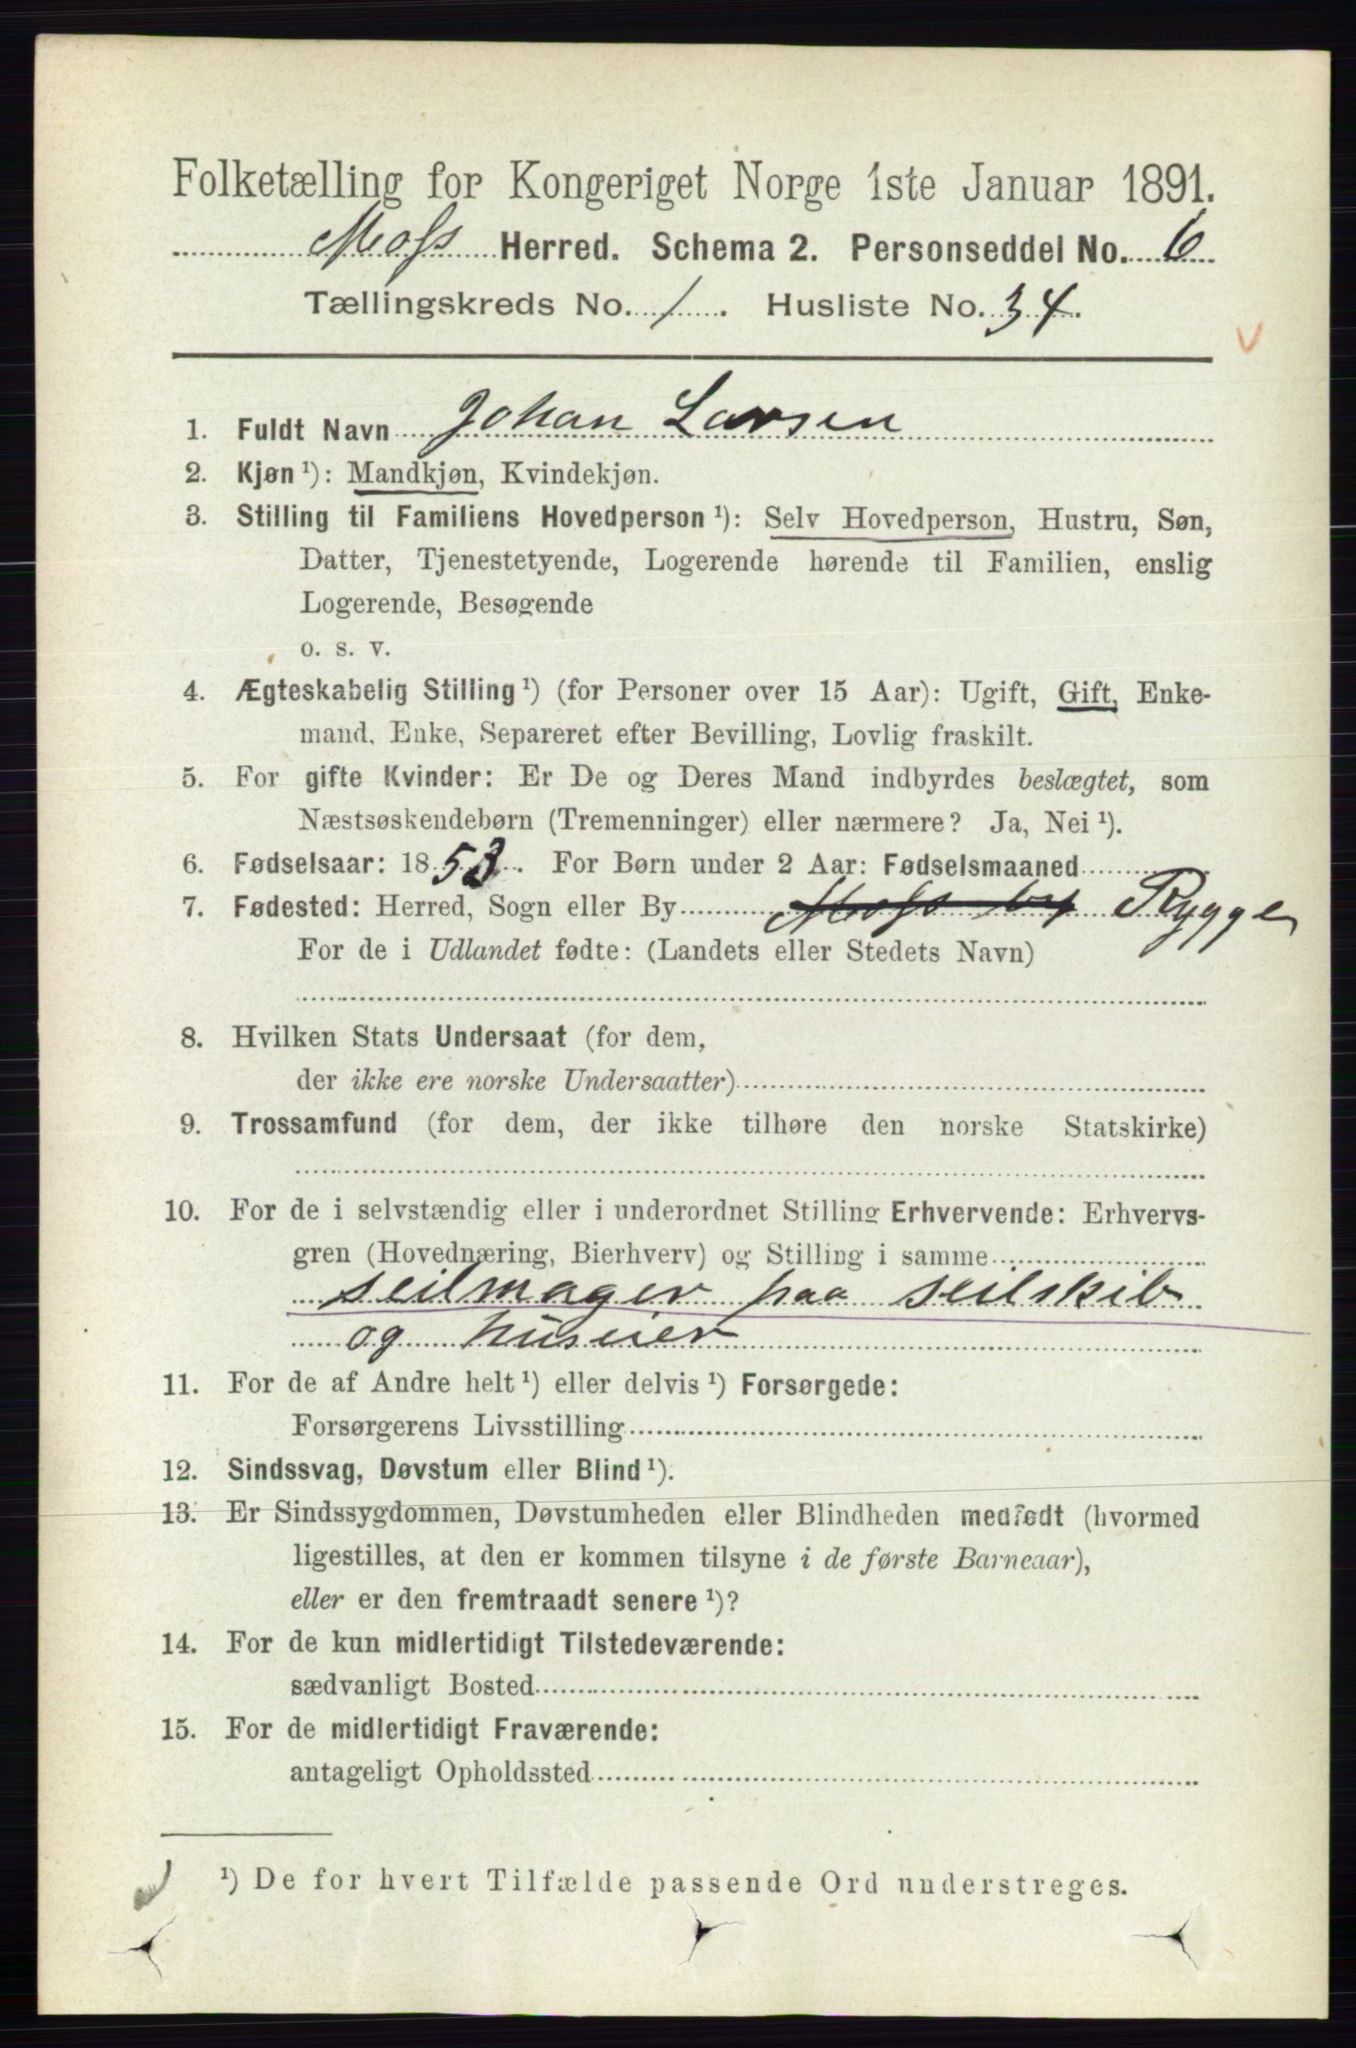 Folketælling for Kongeriget Norge 1ste Januar 1891.
Moss Herred. Schema 2. Personseddel No. 6
Tællingskreds No. 1. Husliste No. 34.
1. Fuldt Navn Johan Larsen
2. Kjøn ¹): Mandkjøn, Kvindekjøn.
3. Stilling til Familiens Hovedperson ¹): Selv Hovedperson, Hustru, Søn,
Datter, Tjenestetyende, Logerende hørende til Familien, enslig
Logerende, Besøgende
o. s. v.
4. Ægteskabelig Stilling ¹) (for Personer over 15 Aar): Ugift, Gift, Enke-
mand, Enke, Separeret efter Bevilling, Lovlig fraskilt.
5. For gifte Kvinder: Er De og Deres Mand indbyrdes beslægtet, som
Næstsøskendebørn (Tremenninger) eller nærmere? Ja, Nei ¹).
6. Fødselsaar: 1853. For Børn under 2 Aar: Fødselsmaaned
7. Fødested: Herred, Sogn eller By Moss by Rygge
For de i Udlandet fødte: (Landets eller Stedets Navn)
8. Hvilken Stats Undersaat (for dem,
der ikke ere norske Undersaatter)
9. Trossamfund (for dem, der ikke tilhøre den norske Statskirke)
10. For de i selvstændig eller i underordnet Stilling Erhvervende: Erhvervs-
gren (Hovednæring, Bierhverv) og Stilling i samme
seilmager paa seilskib
og huseier
11. For de af Andre helt ¹) eller delvis ¹) Forsørgede:
Forsørgerens Livsstilling
12. Sindssvag, Døvstum eller Blind ¹).
13. Er Sindssygdommen, Døvstumheden eller Blindheden medfødt (hvormed
ligestilles, at den er kommen tilsyne i de første Barneaar),
eller er den fremtraadt senere ¹)?
14. For de kun midlertidigt Tilstedeværende:
sædvanligt Bosted
15. For de midlertidigt Fraværende:
antageligt Opholdssted
¹) De for hvert Tilfælde passende Ord understreges.